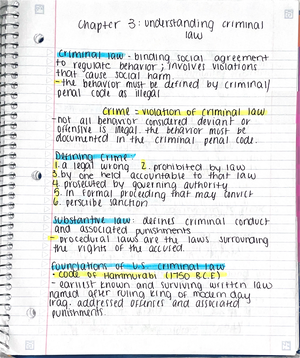 Chapter 3: understanding criminal
law
Criminal law - binding social agreement
to regulate behavior; involves violations
that cause social harm
- the behavior must be defined by criminal/
penal code as illegal
Crime = violation of criminal law
- not all behavior considered deviant or
offensive is illegal. the behavior must be
documented in the criminal penal code.
Defining Crime
1. a legal wrong 2. prohibited by law
3. by one held accountable to that law
4. prosecuted by governing authority
5. in formal proceding that may convict
6. perscribe sanction
Substantive law: defines criminal conduct
and associated punishments
- procedural laws are the laws surrounding
the rights of the accused.
Foundations of U.S. criminal law
- Code of Hammurabi (1750 B.C.E)
- earliest known and surviving written law
named after ruling king of modern day
Iraq. addressed offences and associated
punishments.